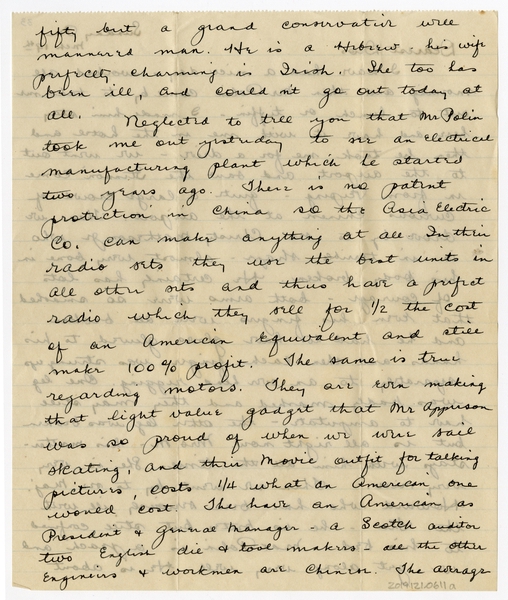 fifty but a grand conservative well
mannered man. He is a Hebrew - his wife
perfectly charming is Irish. She too has
been ill, and couldn't go out today at
all. Neglected to tell you that Mr Polin
took me out yesterday to see an Electrical
manufacturing plant which he started
two years ago. There is no patent
protection in China so the Asia Electric
Co. can make anything at all. In their
radio sets they use the best units in
all other sets and thus have a perfect
radio which they sell for 1/2 the cost
of an American Equivalent and still
make 100% profit. The same is true
regarding motors. They are even making
that light value gadget that Mr Apperson
was so proud of when we were sail
skating, and their Movie outfit for talking
pictures, costs 1/4 what an American one
would cost. The have an American as
President & General Manager - a Scotch auditor
two English die & tool makers - all the other
Engineers & workmen are Chinese. The average
2019.121.0611a